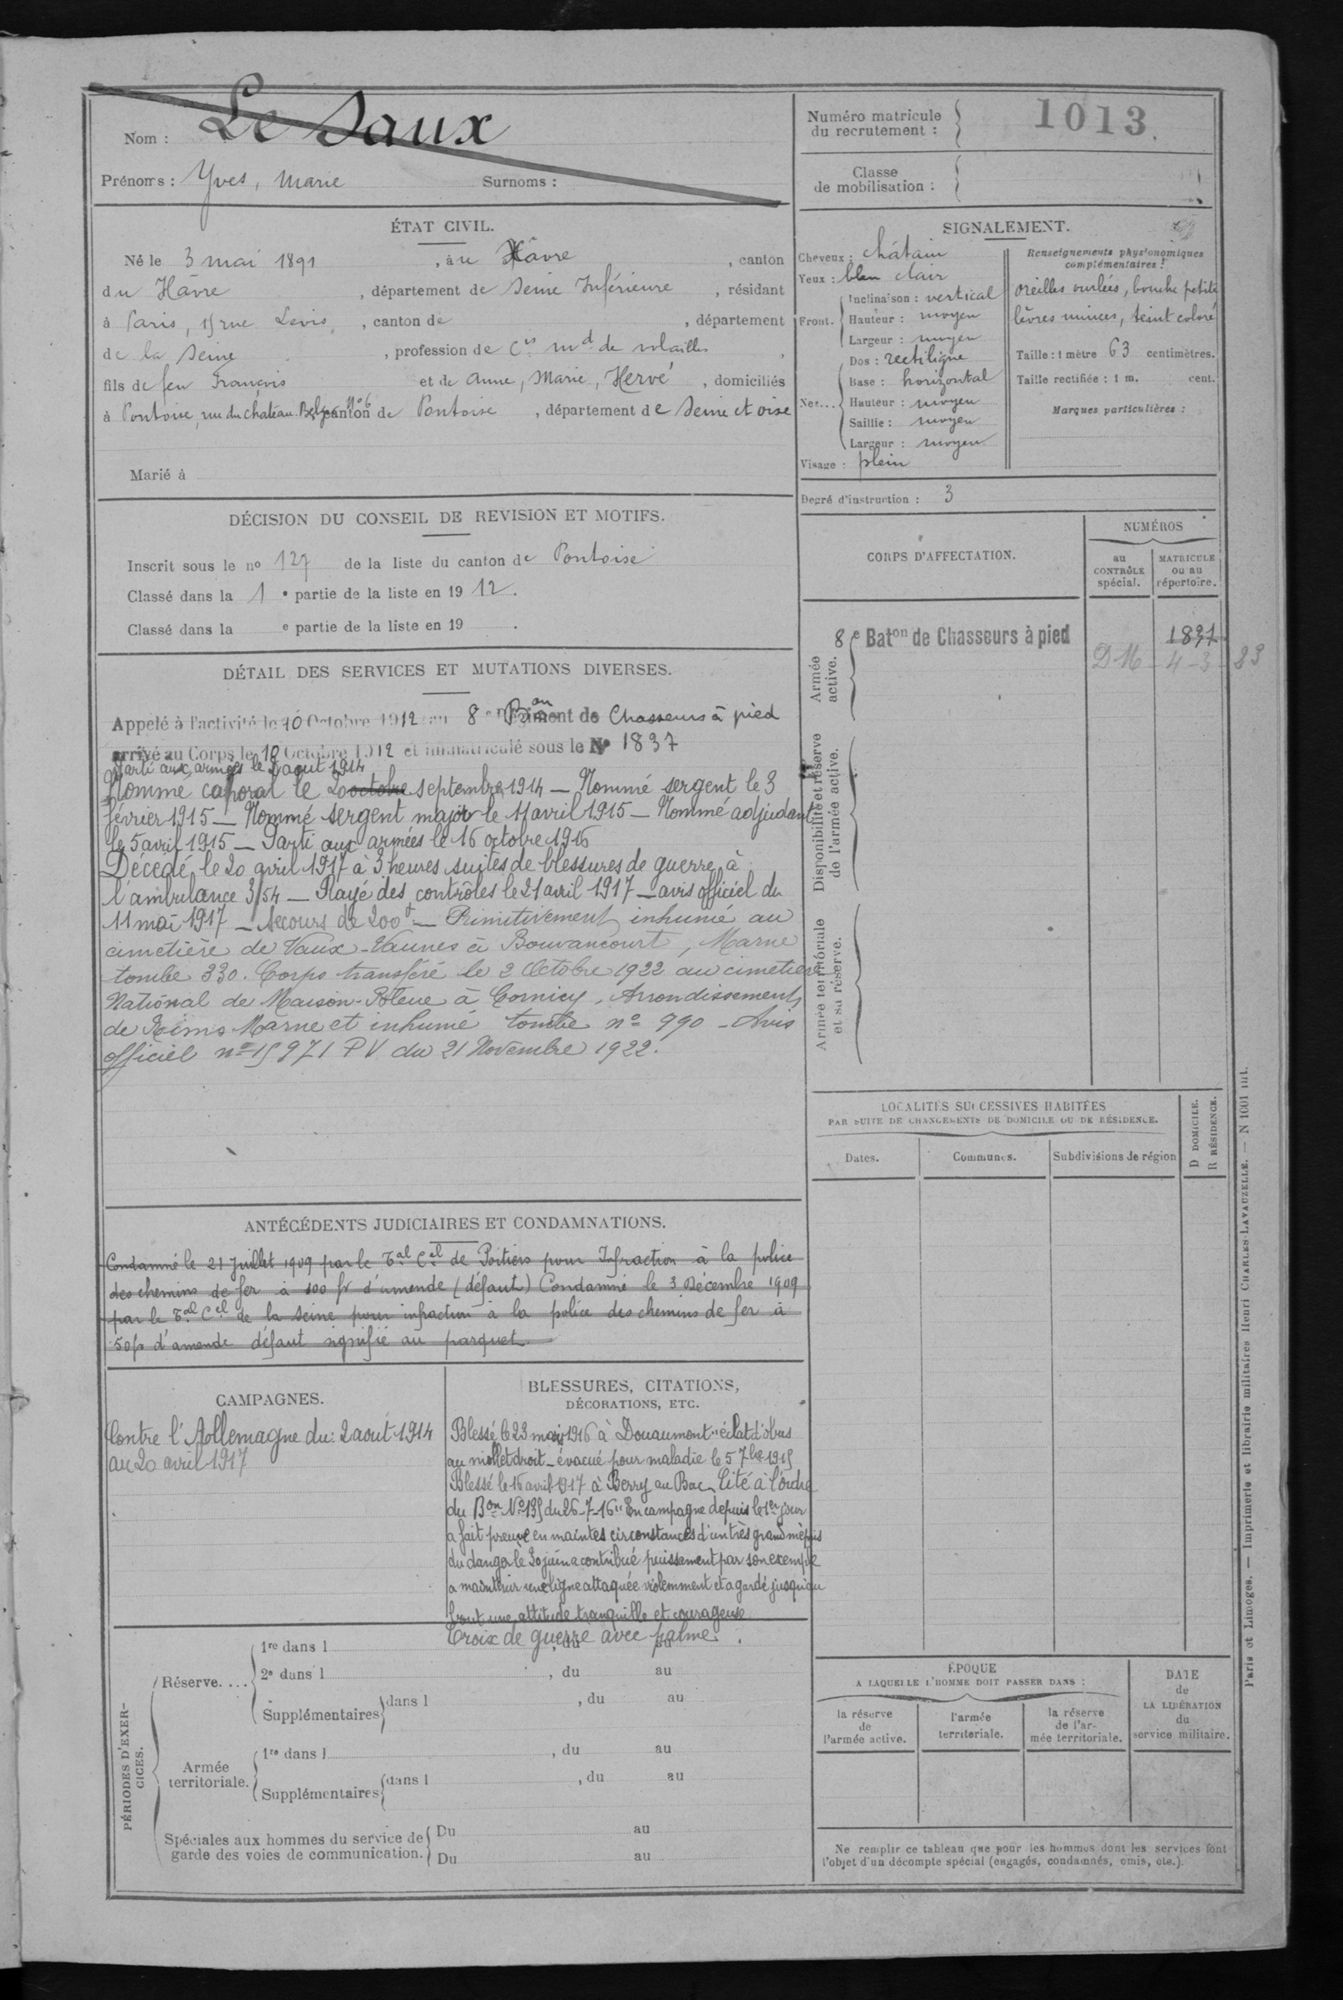 Nom : Le Saux
Prénoms : Yves, Marie Surnoms :
Numéro matricule du recrutement : 1013.
Classe de mobilisation :
ÉTAT CIVIL.
Né le 3 mai 1891, à u Hâvre, canton
du Hâvre, département de Seine Inférieure, résidant
à Paris, 15 rue Levis, canton de , département
de la Seine, profession de Cis md de volailles,
fils de feu François et de Anne, Marie, Hervé, domiciliés
à Pontoise, rue du château Belger No 6 canton de Pontoise, département de Seine et oise
Marié à
SIGNALEMENT.
Cheveux : châtain
Yeux : bleu clair
Front. Inclinaison : vertical
Hauteur : moyen
Largeur : moyen
Nez... Dos : rectiligne
Base : horizontal
Hauteur : moyen
Saillie : moyen
Largeur : moyen
Visage : plein
Renseignements physionomiques complémentaires :
oreilles ourlées, bouche petite
lèvres minces, teint coloré
Taille : 1 mètre 63 centimètres.
Taille rectifiée : 1 m. cent.
Marques particulières :
Degré d'instruction : 3
DÉCISION DU CONSEIL DE REVISION ET MOTIFS.
Inscrit sous le no 127 de la liste du canton de Pontoise
Classé dans la 1e partie de la liste en 1912.
Classé dans la e partie de la liste en 19 .
DÉTAIL DES SERVICES ET MUTATIONS DIVERSES.
Appelé à l'activité le 10 Octobre 1912 au 8e Bon Régiment de Chasseurs à pied
arrivé au Corps le 10 Octobre 1912 et immatriculé sous le No 1837
Parti aux armées le 2 aout 1914
Nommé caporal le 20 octobre septembre 1914 — Nommé sergent le 3
février 1915 — Nommé sergent major le 11 avril 1915 — Nommé adjudant
le 5 avril 1915 — Parti aux armées le 16 octobre 1916
Décédé le 20 avril 1917 à 3 heures suites de blessures de guerre à
l'ambulance 3/54 — Rayé des contrôles le 21 avril 1917 — avis officiel du
11 mai 1917 — Secours de 200f — Primitivement inhumé au
cimetière de Vaux-Vaunes à Bouvancourt, Marne
tombe 330. Corps transféré le 2 Octobre 1922 au cimetière
National de Maison-Bleue à Cormicy, Arrondissement
de Reims Marne et inhumé tombe no 990 — Avis
officiel no 15971 PV du 21 Novembre 1922.
CORPS D'AFFECTATION.
NUMÉROS
au CONTRÔLE spécial.
MATRICULE ou au répertoire.
Armée active.
8e Baton de Chasseurs à pied 1837
DM - 4-3-83
Disponibilité et réserve de l'armée active.
Armée territoriale et sa réserve.
LOCALITÉS SUCCESSIVES HABITÉES
PAR SUITE DE CHANGEMENTS DE DOMICILE OU DE RÉSIDENCE.
Dates. Communes. Subdivisions de région
D DOMICILE.
R RÉSIDENCE.
ANTÉCÉDENTS JUDICIAIRES ET CONDAMNATIONS.
Condamné le 21 Juillet 1909 par le Tal Cel de Poitiers pour Infraction à la police
des chemins de fer à 100 fr d'amende (défaut) Condamné le 3 Décembre 1909
par le Tal Cel de la Seine pour infraction à la police des chemins de fer à
50 fr d'amende défaut signifié au parquet
CAMPAGNES.
Contre l'Allemagne du : 2 aout 1914
au 20 avril 1917
BLESSURES, CITATIONS,
DÉCORATIONS, ETC.
Blessé le 23 mai 1916 à Douaumont "éclat d'obus
au mollet droit — évacué pour maladie le 5 7bre 1915
Blessé le 16 avril 1917 à Berry au Bac. Cité à l'ordre
du Bon No 135 du 26-7-16 "En campagne depuis le 1er jour
a fait preuve en maintes circonstances d'un très grand mépris
du danger le 20 juin a contribué puissament par son exemple
a maintenir une ligne attaquée violemment et a gardé jusqu'au
bout une attitude tranquille et courageuse
Croix de guerre avec palme.
PÉRIODES D'EXERCICES.
Réserve....
1re dans l , du au
2e dans l , du au
Supplémentaires dans l , du au
Armée territoriale.
1re dans l , du au
Supplémentaires dans l , du au
Spéciales aux hommes du service de garde des voies de communication.
Du au
Du au
ÉPOQUE
A LAQUELLE L'HOMME DOIT PASSER DANS :
la réserve de l'armée active.
l'armée territoriale.
la réserve de l'armée territoriale.
DATE de LA LIBÉRATION du service militaire.
Ne remplir ce tableau que pour les hommes dont les services font
l'objet d'un décompte spécial (engagés, condamnés, omis, etc.).
Paris et Limoges. — Imprimerie et librairie militaires Henri CHARLES-LAVAUZELLE. — N 1001 int.